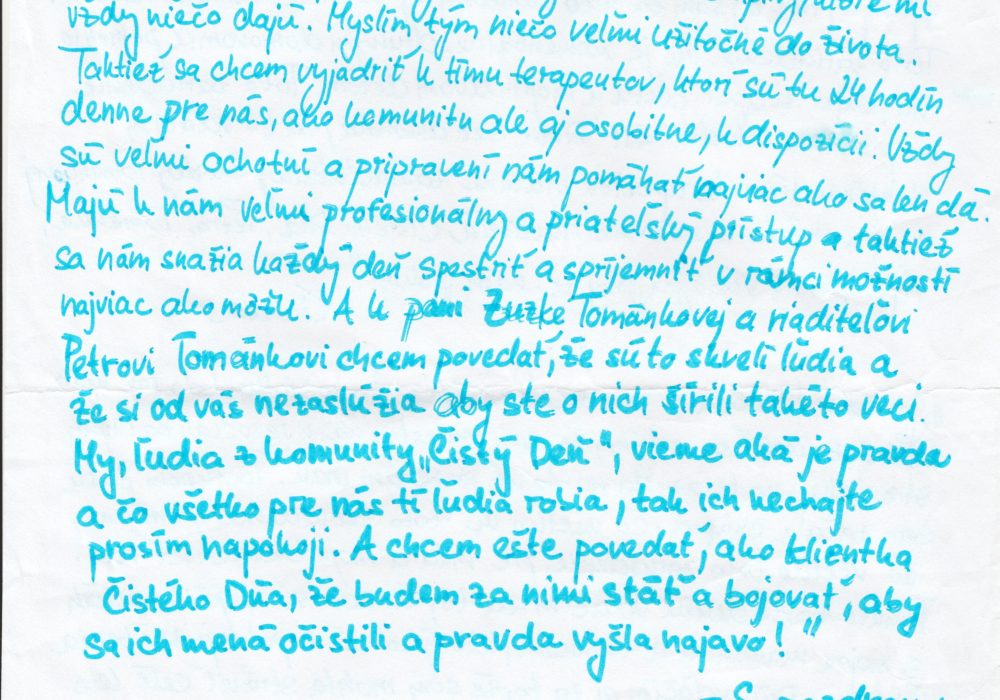 vždy niečo dajú. Myslím tým niečo veľmi užitočné do života.
Taktiež sa chcem vyjadriť k tímu terapeutov, ktorí sú tu 24 hodín
denne pre nás, ako komunitu ale aj osobitne, k dispozícii. Vždy
sú veľmi ochotní a pripravení nám pomáhať najviac ako sa len dá.
Majú k nám veľmi profesionálny a priateľský prístup a taktiež
sa nám snažia každý deň spestriť a spríjemniť v rámci možností
najviac ako môžu. A k pani Zuzke Tománkovej a riaditeľovi
Petrovi Tománkovi chcem povedať, že sú to skvelí ľudia a
že si od vás nezaslúžia aby ste o nich šírili takéto veci.
My, ľudia z komunity „Čistý Deň", vieme aká je pravda
a čo všetko pre nás tí ľudia robia, tak ich nechajte
prosím napokoji. A chcem ešte povedať, ako klientka
Čistého Dňa, že budem za nimi stáť a bojovať, aby
sa ich mená očistili a pravda vyšla najavo!"